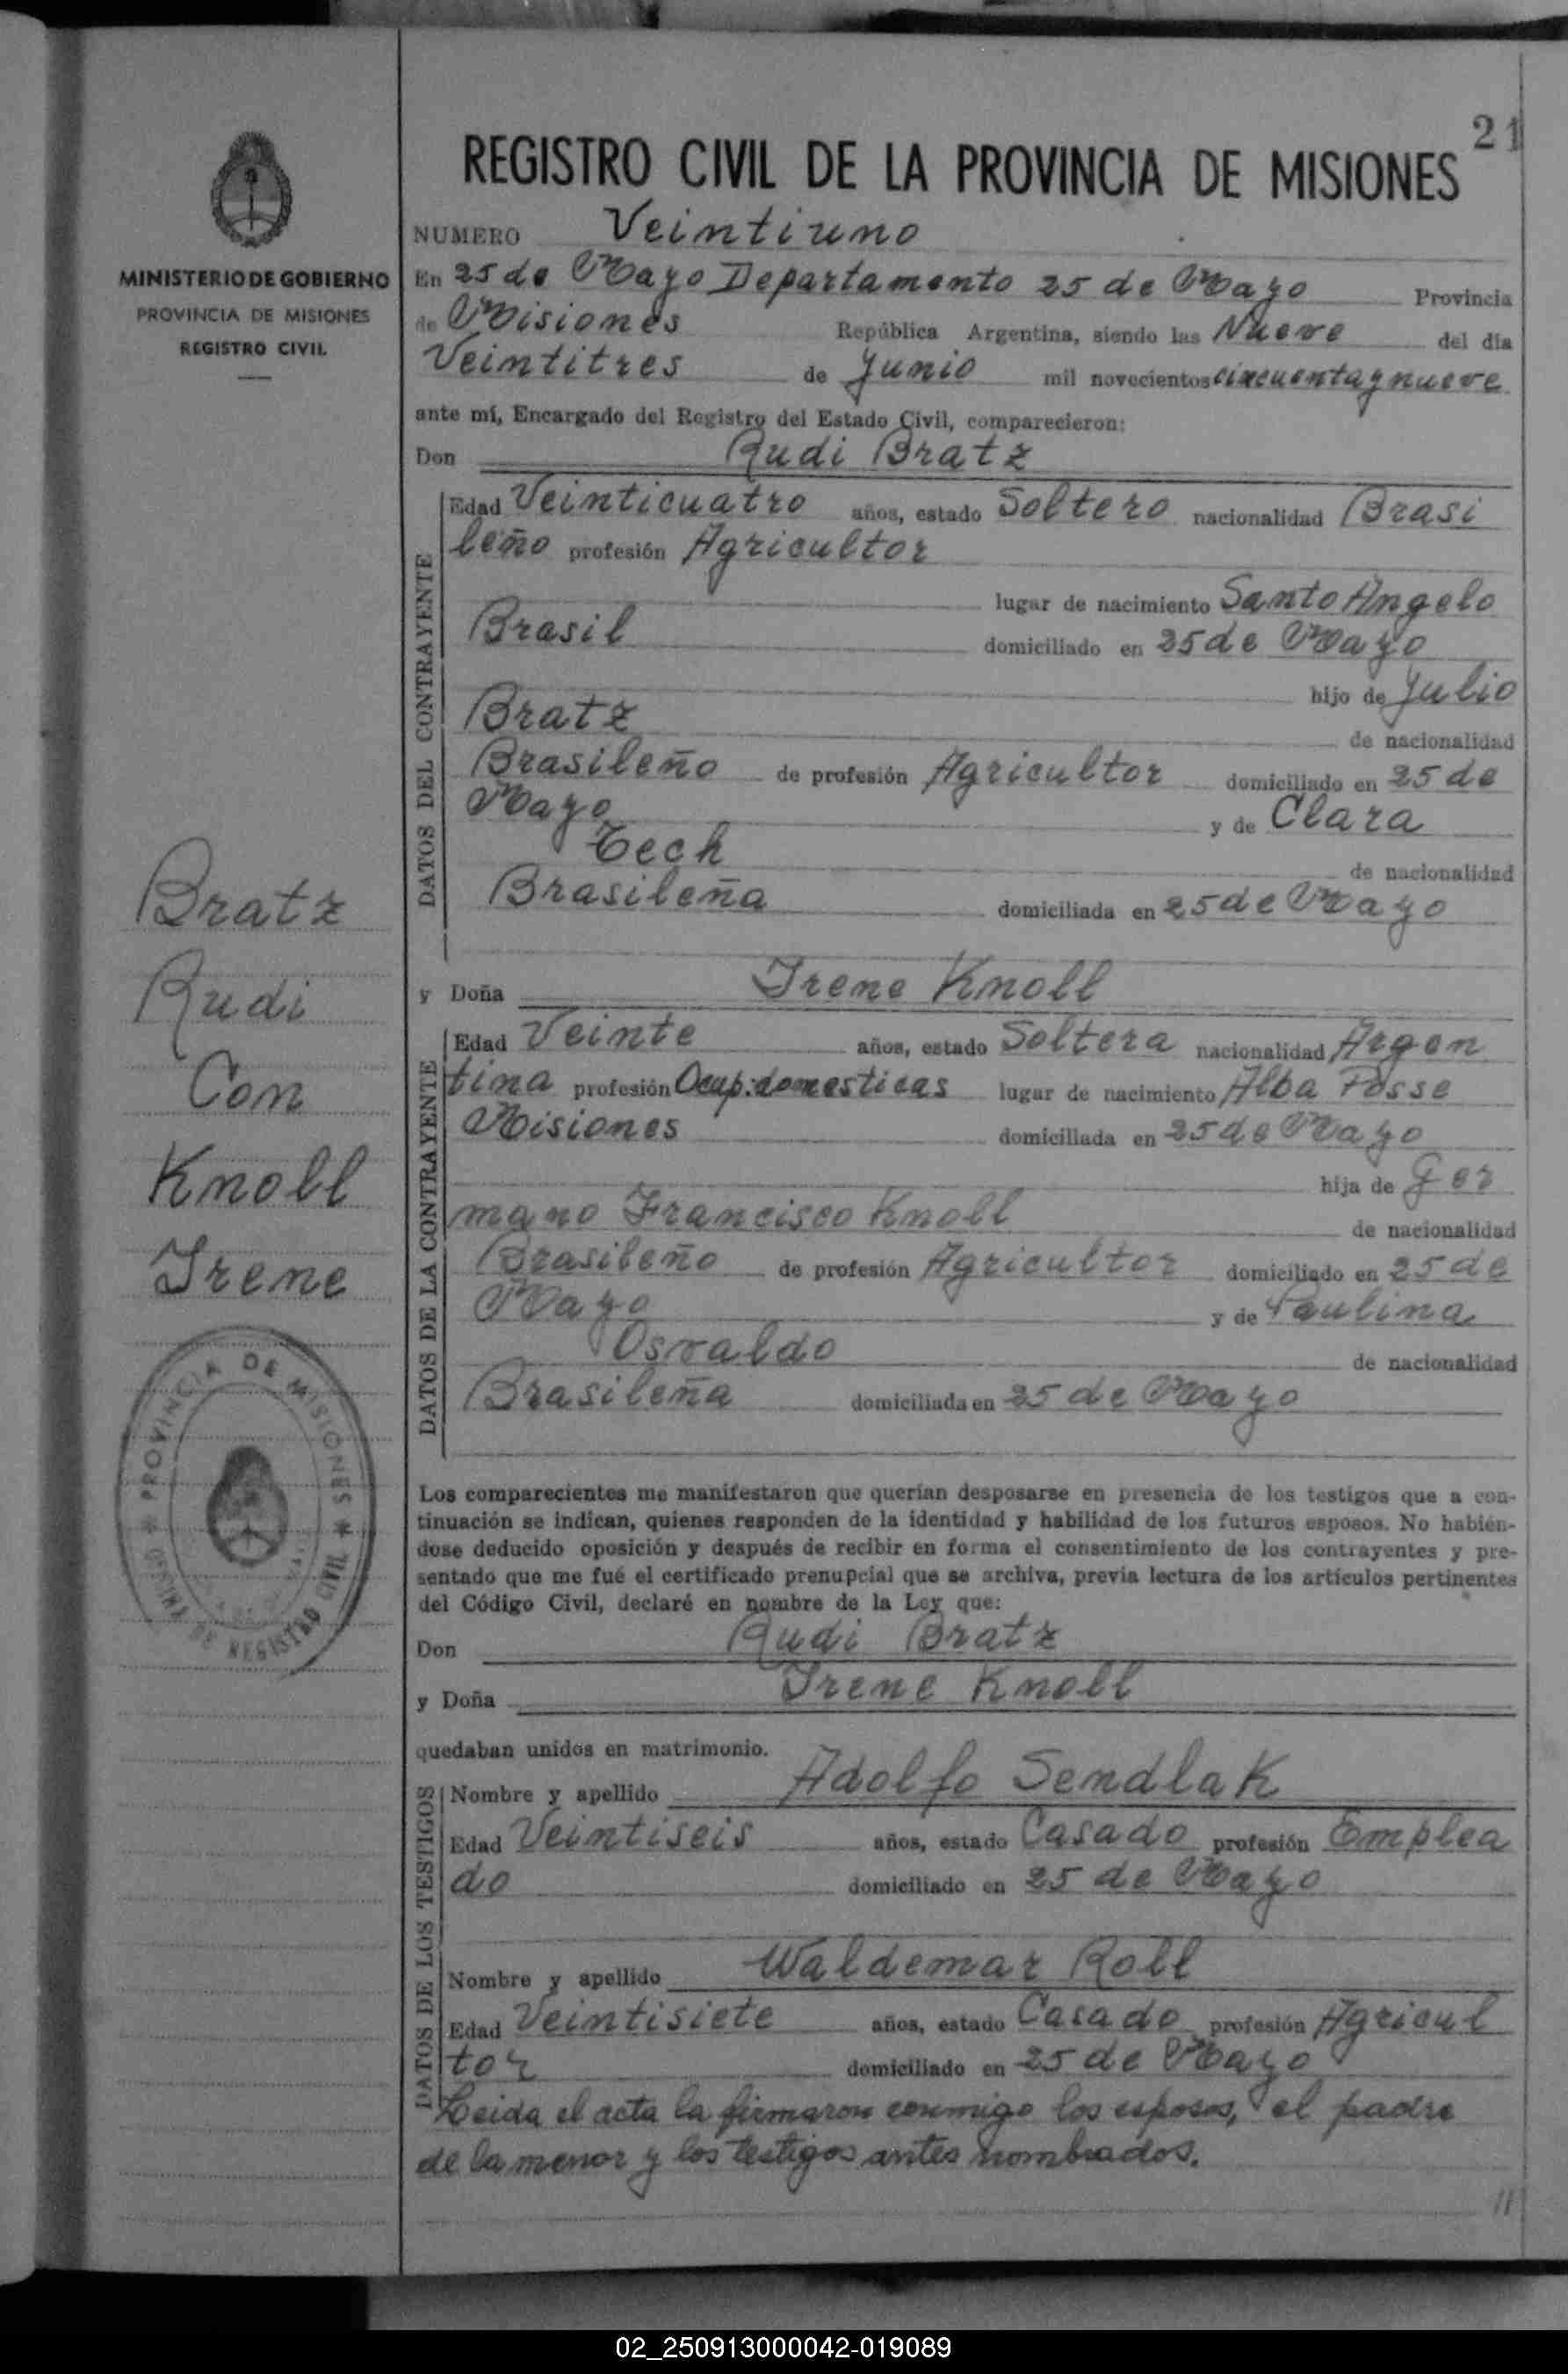 21
REGISTRO CIVIL DE LA PROVINCIA DE MISIONES
MINISTERIO DE GOBIERNO
PROVINCIA DE MISIONES
REGISTRO CIVIL
NUMERO Veintiuno
En 25 de Mayo Departamento 25 de Mayo Provincia
de Misiones República Argentina, siendo las Nueve del día
Veintitres de Junio mil novecientos cincuenta y nueve
ante mí, Encargado del Registro del Estado Civil, comparecieron:
Don Rudi Bratz
DATOS DEL CONTRAYENTE
Edad Veinticuatro años, estado Soltero nacionalidad Brasi
leño profesión Agricultor
lugar de nacimiento Santo Angelo
Brasil domiciliado en 25 de Mayo
hijo de Julio
Bratz de nacionalidad
Brasileño de profesión Agricultor domiciliado en 25 de
Mayo y de Clara
Tech de nacionalidad
Brasileña domiciliada en 25 de Mayo
Bratz
Rudi
Con
Knoll
Irene
y Doña Irene Knoll
DATOS DE LA CONTRAYENTE
Edad Veinte años, estado Soltera nacionalidad Argen
tina profesión Ocup. domesticas lugar de nacimiento Alba Posse
Misiones domiciliada en 25 de Mayo
hija de Ger
mano Francisco Knoll de nacionalidad
Brasileño de profesión Agricultor domiciliado en 25 de
Mayo y de Paulina
Osvaldo de nacionalidad
Brasileña domiciliada en 25 de Mayo
PROVINCIA DE MISIONES
OFICINA DE REGISTRO CIVIL
Los comparecientes me manifestaron que querían desposarse en presencia de los testigos que a con-
tinuación se indican, quienes responden de la identidad y habilidad de los futuros esposos. No habién-
dose deducido oposición y después de recibir en forma el consentimiento de los contrayentes y pre-
sentado que me fué el certificado prenupcial que se archiva, previa lectura de los artículos pertinentes
del Código Civil, declaré en nombre de la Ley que:
Don Rudi Bratz
y Doña Irene Knoll
quedaban unidos en matrimonio.
DATOS DE LOS TESTIGOS
Nombre y apellido Adolfo Sendlak
Edad Veintiseis años, estado Casado profesión Emplea
do domiciliado en 25 de Mayo
Nombre y apellido Waldemar Roll
Edad Veintisiete años, estado Casado profesión Agricul
tor domiciliado en 25 de Mayo
Leida el acta la firmaron conmigo los esposos, el padre
de la menor y los testigos antes nombrados.
02_250913000042-019089